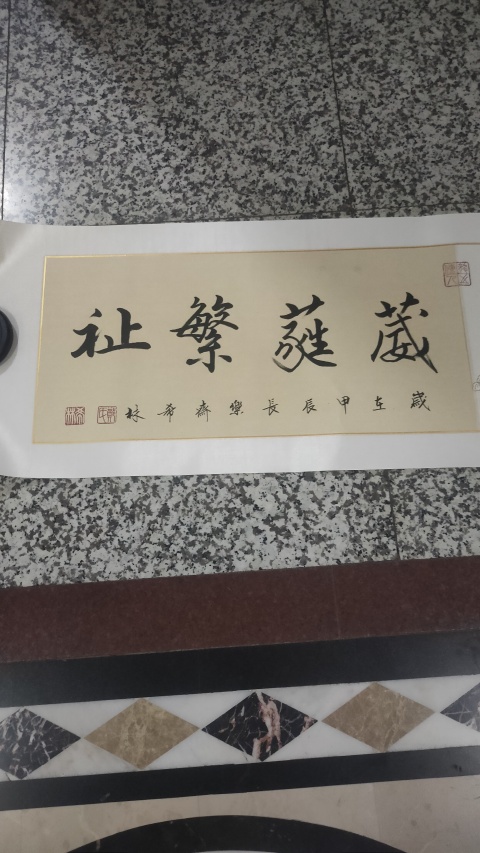 葳蕤繁祉
歲在甲辰長樂齋希林